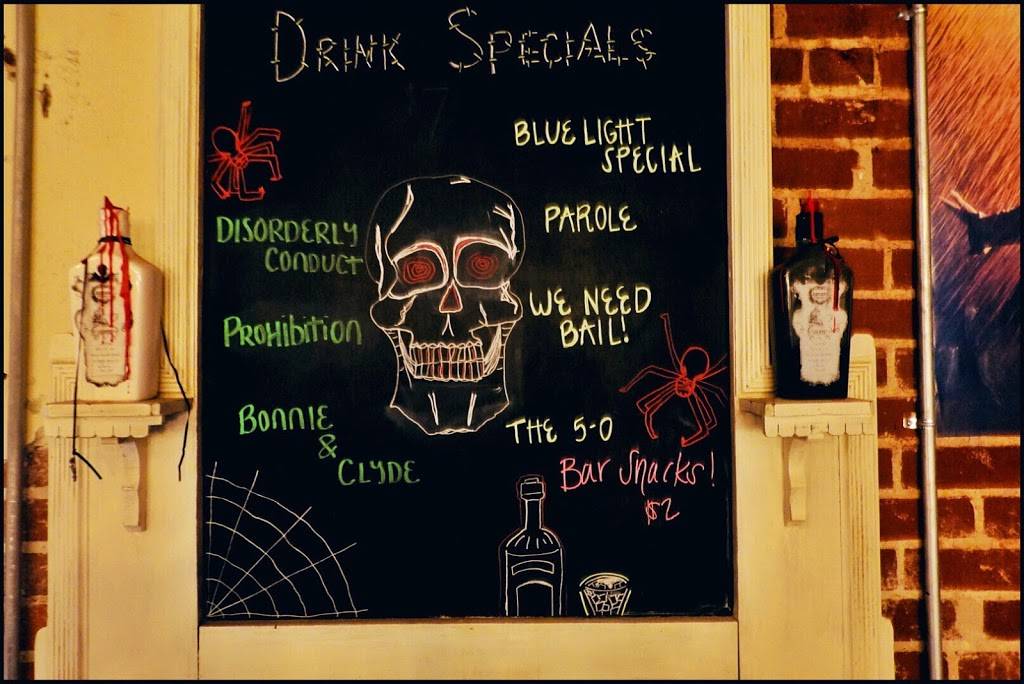 DRINK SPECIALS
DISORDERLY
CONDUCT
PROHIBITION
BONNIE
&
CLYDE
BLUE LIGHT
SPECIAL
PAROLE
WE NEED
BAIL!
THE 5-0
Bar Snacks!
$2